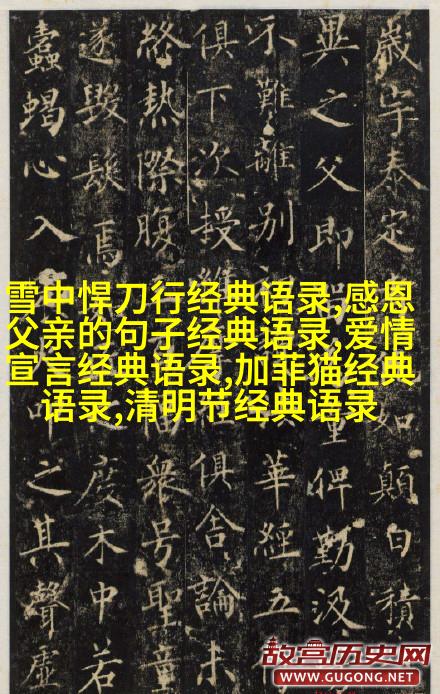 歲宇泰定如顛白積
異之父即重俾勤汲
不難離別華經五
俱下次授維俱舍論未
終熱際腹衆号聖童
遂毀髮焉之度木中若
蠹蝎心入之其聲虛
雪中悍刀行经典语录,感恩
父亲的句子经典语录,爱情
宣言经典语录,加菲猫经典
语录,清明节经典语录
故宫历史网
WWW.GUGONG.NET